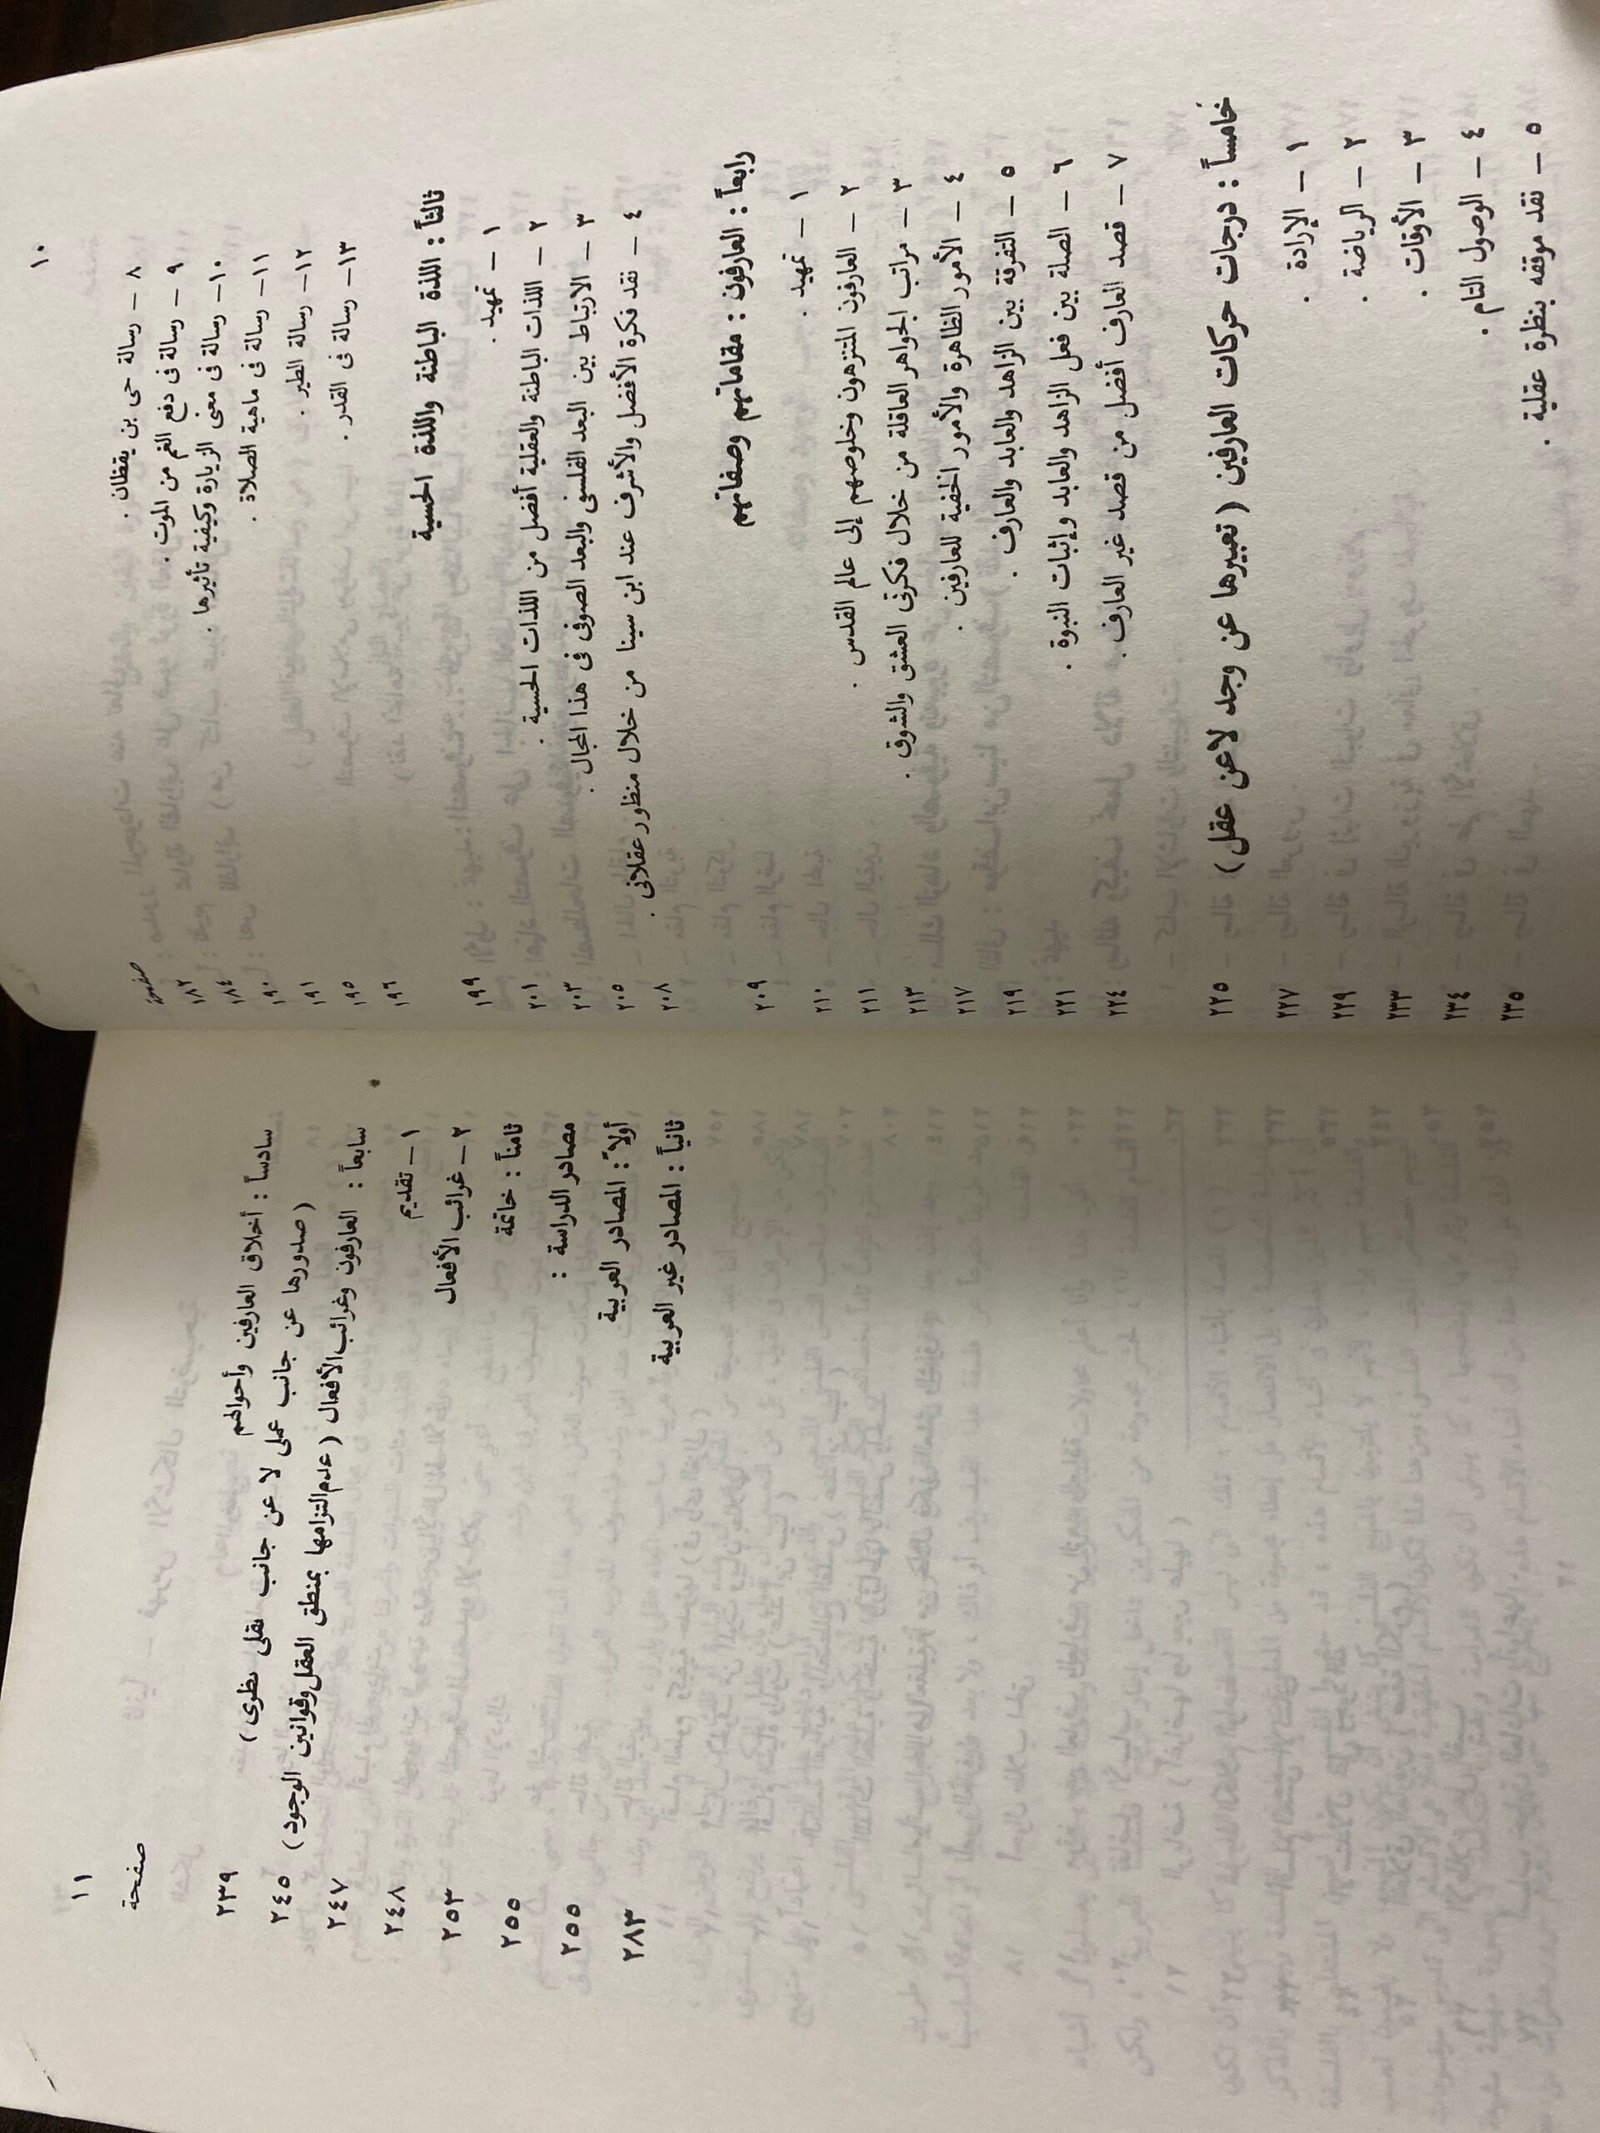 ١٠
صفحة
٨ – رسالة حى بن يقظان . ١٨٢
٩ – رسالة فى دفع الغم من الموت . ١٨٤
١٠– رسالة فى معنى الزيارة وكيفية تأثيرها . ١٩٠
١١– رسالة فى ماهية الصلاة . ١٩١
١٢– رسالة الطير . ١٩٥
١٣– رسالة فى القدر . ١٩٦
ثالثاً : اللذة الباطنة واللذة الحسية
١ – تمهيد . ١٩٩
٢ – اللذات الباطنة والعقلية أفضل من اللذات الحسية . ٢٠١
٣ – الارتباط بين البعد الفلسفى والبعد الصوفى فى هذا المجال . ٢٠٣
٤ – نقد فكرة الأفضل والأشرف عند ابن سينا من خلال منظور عقلانى . ٢٠٥
٢٠٨
رابعاً : العارفون : مقاماتهم وصفاتهم ٢٠٩
١ – تمهيد . ٢١٠
٢ – العارفون المتنزهون وخلوصهم إلى عالم القدس . ٢١١
٣ – مراتب الجواهر العاقلة من خلال فكرتى العشق والشوق . ٢١٣
٤ – الأمور الظاهرة والأمور الخفية للعارفين . ٢١٧
٥ – التفرقة بين الزاهد والعابد والعارف . ٢١٩
٦ – الصلة بين فعل الزاهد والعابد وإثبات النبوة . ٢٢١
٧ – قصد العارف أفضل من قصد غير العارف . ٢٢٤
خامساً : درجات حركات العارفين ( تعبيرها عن وجد لا عن عقل ) ٢٢٥
١ – الإرادة . ٢٢٧
٢ – الرياضة . ٢٢٩
٣ – الأوقات . ٢٣٣
٤ – الوصول التام . ٢٣٤
٥ – نقد موقفه بنظرة عقلية . ٢٣٥
١١
صفحة
سادساً : أخلاق العارفين وأحوالهم
(صدورها عن جانب عملى لا عن جانب عقلى نظرى) ٢٣٩
سابعاً : العارفون وغرائب الأفعال (عدم التزامها بمنطق العقل وقوانين الوجود) ٢٤٥
١ – تقديم ٢٤٧
٢ – غرائب الأفعال ٢٤٨
ثامناً : خاتمة ٢٥٣
مصادر الدراسة : ٢٥٥
أولاً : المصادر العربية ٢٥٥
ثانياً : المصادر غير العربية ٢٨٣